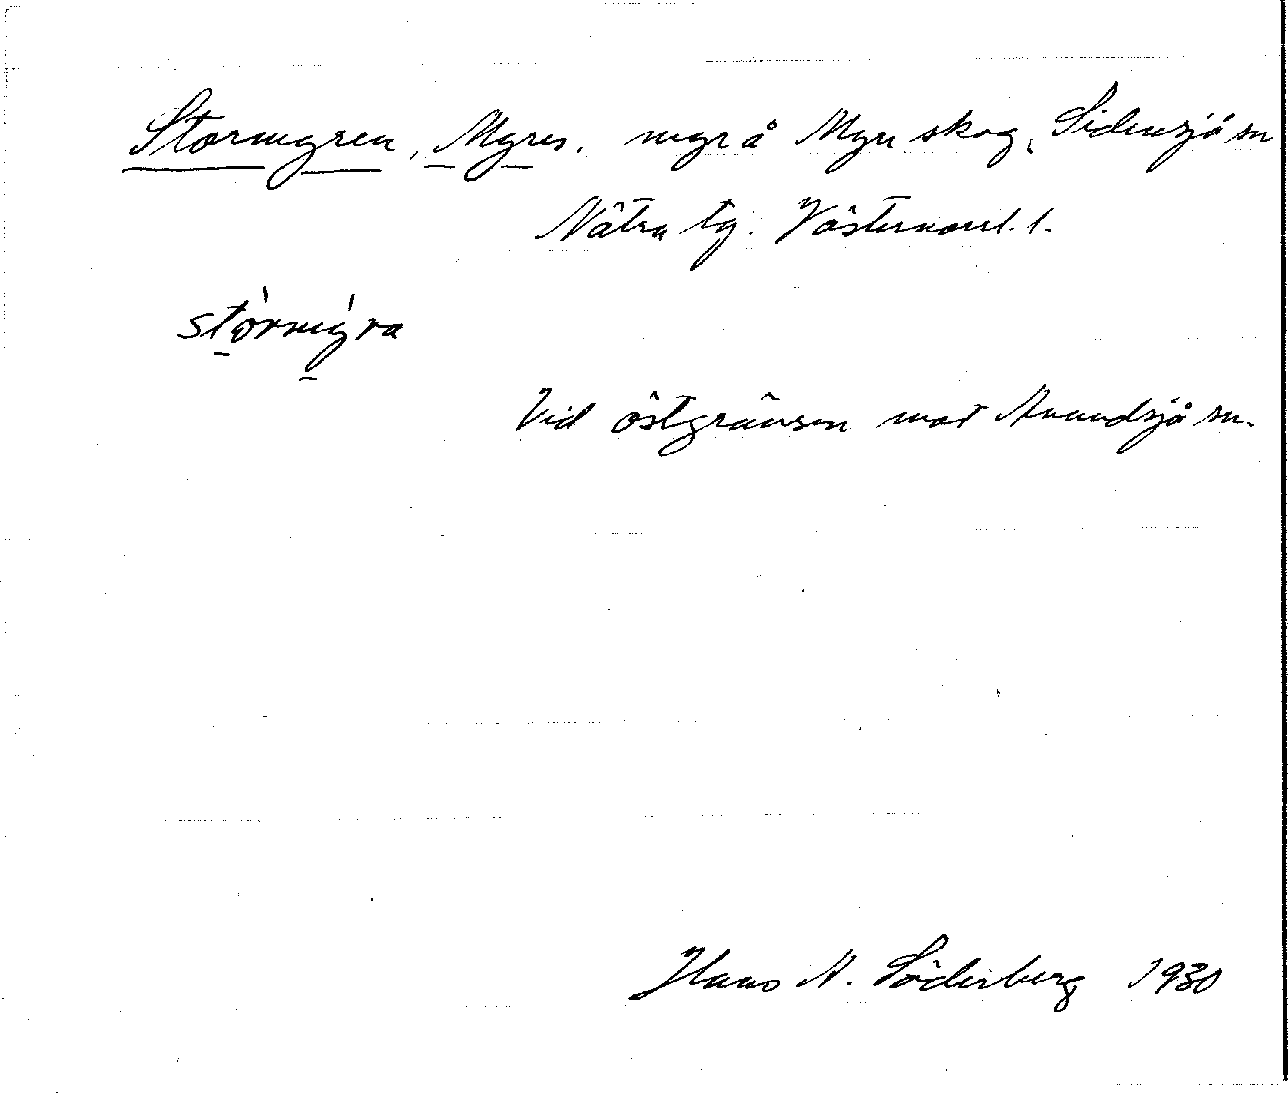 Stormyren, Myres. myr å Myre skog, Sidensjö sn
Nätra tg. Västernorrl. l.
stórmýra
Vid östgränsen mot Anundsjö sn.
Hans N. Söderberg 1930